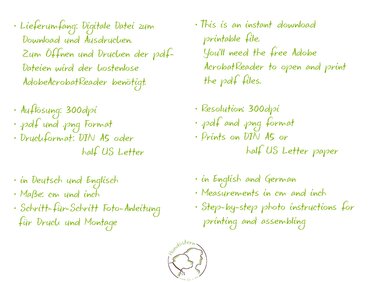 • Lieferumfang: Digitale Datei zum
Download und Ausdrucken.
Zum Öffnen und Drucken der pdf-
Dateien wird der kostenlose
AdobeAcrobatReader benötigt.
• Auflösung: 300dpi
• .pdf und .png Format
• Druckformat: DIN A5 oder
half US Letter
• in Deutsch und Englisch
• Maße: cm und inch
• Schritt-für-Schritt Foto-Anleitung
für Druck und Montage
• This is an instant download
printable file.
You'll need the free Adobe
AcrobatReader to open and print
the pdf files.
• Resolution: 300dpi
• .pdf and .png format
• Prints on DIN A5 or
half US Letter paper
• in English and German
• Measurements in cm and inch
• Step-by-step photo instructions for
printing and assembling